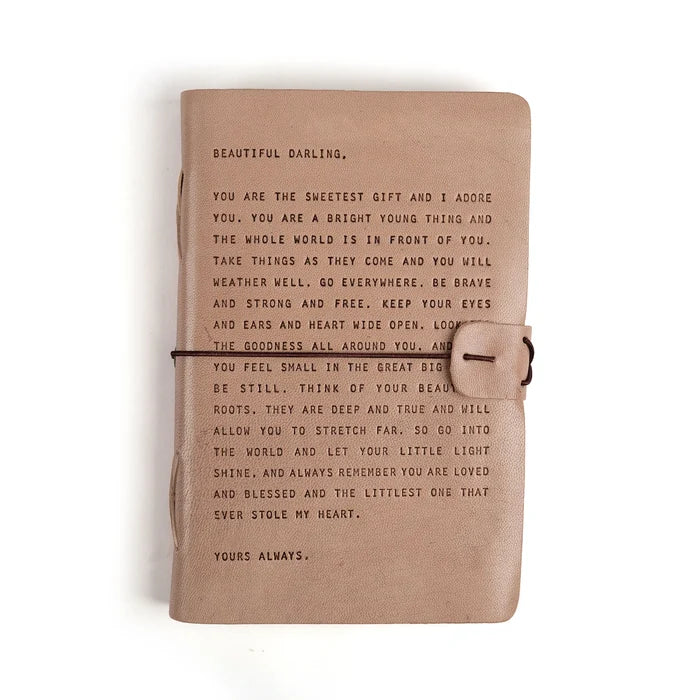 BEAUTIFUL DARLING,
YOU ARE THE SWEETEST GIFT AND I ADORE
YOU. YOU ARE A BRIGHT YOUNG THING AND
THE WHOLE WORLD IS IN FRONT OF YOU.
TAKE THINGS AS THEY COME AND YOU WILL
WEATHER WELL. GO EVERYWHERE. BE BRAVE
AND STRONG AND FREE. KEEP YOUR EYES
AND EARS AND HEART WIDE OPEN. LOOK
THE GOODNESS ALL AROUND YOU. AND
YOU FEEL SMALL IN THE GREAT BIG
BE STILL. THINK OF YOUR
ROOTS. THEY ARE DEEP AND TRUE AND WILL
ALLOW YOU TO STRETCH FAR. SO GO INTO
THE WORLD AND LET YOUR LITTLE LIGHT
SHINE. AND ALWAYS REMEMBER YOU ARE LOVED
AND BLESSED AND THE LITTLEST ONE THAT
EVER STOLE MY HEART.
YOURS ALWAYS.